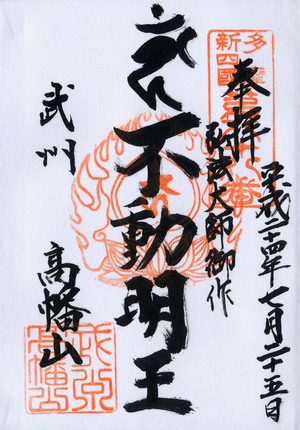 奉拝
平成二十四年七月二十五日
弘法大師御作
不動明王
武州
高幡山
多摩
新四国
八番